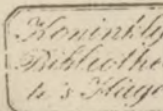 Koninkly
Bibliothe
te's Hage